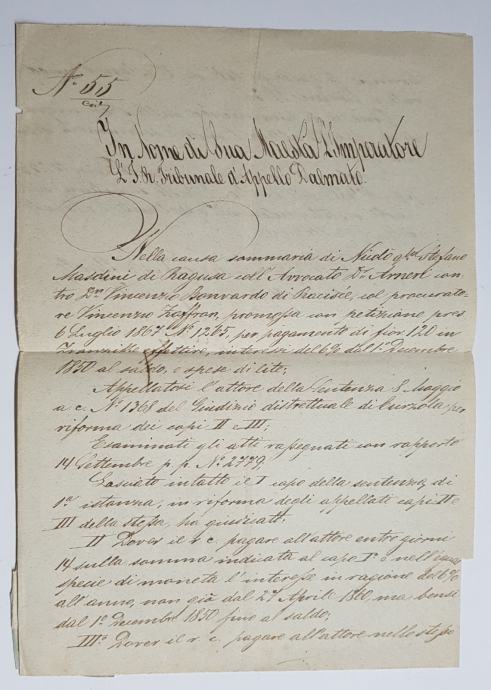 N.º 55
Civ.
In Nome di Sua Maestà L'Imperatore
L'I. R. Tribunale d'Appello Dalmato.
Nella causa sommaria di Nicolò qm Stefano
Mascini di Ragusa coll'Avvocato Dr. Arneri con
tro Dn Vincenzo di col procurato
re Vincenzo Zaffron, promossa con petizione pres.
6 Luglio 1867 Nº 1265, per pagamento di fior 120 in
effettive, interessi del 6% dal 1º Decembre
1850 al saldo, e spese di lite;
Appellatosi l'attore della Sentenza 8 Maggio
a c. Nº 1368 del Giudizio distrettuale di Curzola per
riforma dei capi II e III;
Esaminati gli atti rassegnati con rapporto
14 Settembre p. p. Nº 2779,
Lasciato intatto il I capo della sentenza, di
1ª istanza, in riforma degli appellati capi II e
III della stessa, ha giudicato;
II Dover il r. c. pagare all'attore entro giorni
14 sulla somma indicata al capo Iº e nell'
specie di moneta l'interesse in ragione del 6%
all'anno, non già dal 27 Aprile 1860, ma bensì
dal 1º Decembre 1850 fino al saldo;
IIIº Dover il r. c. pagare all'attore nello stesso